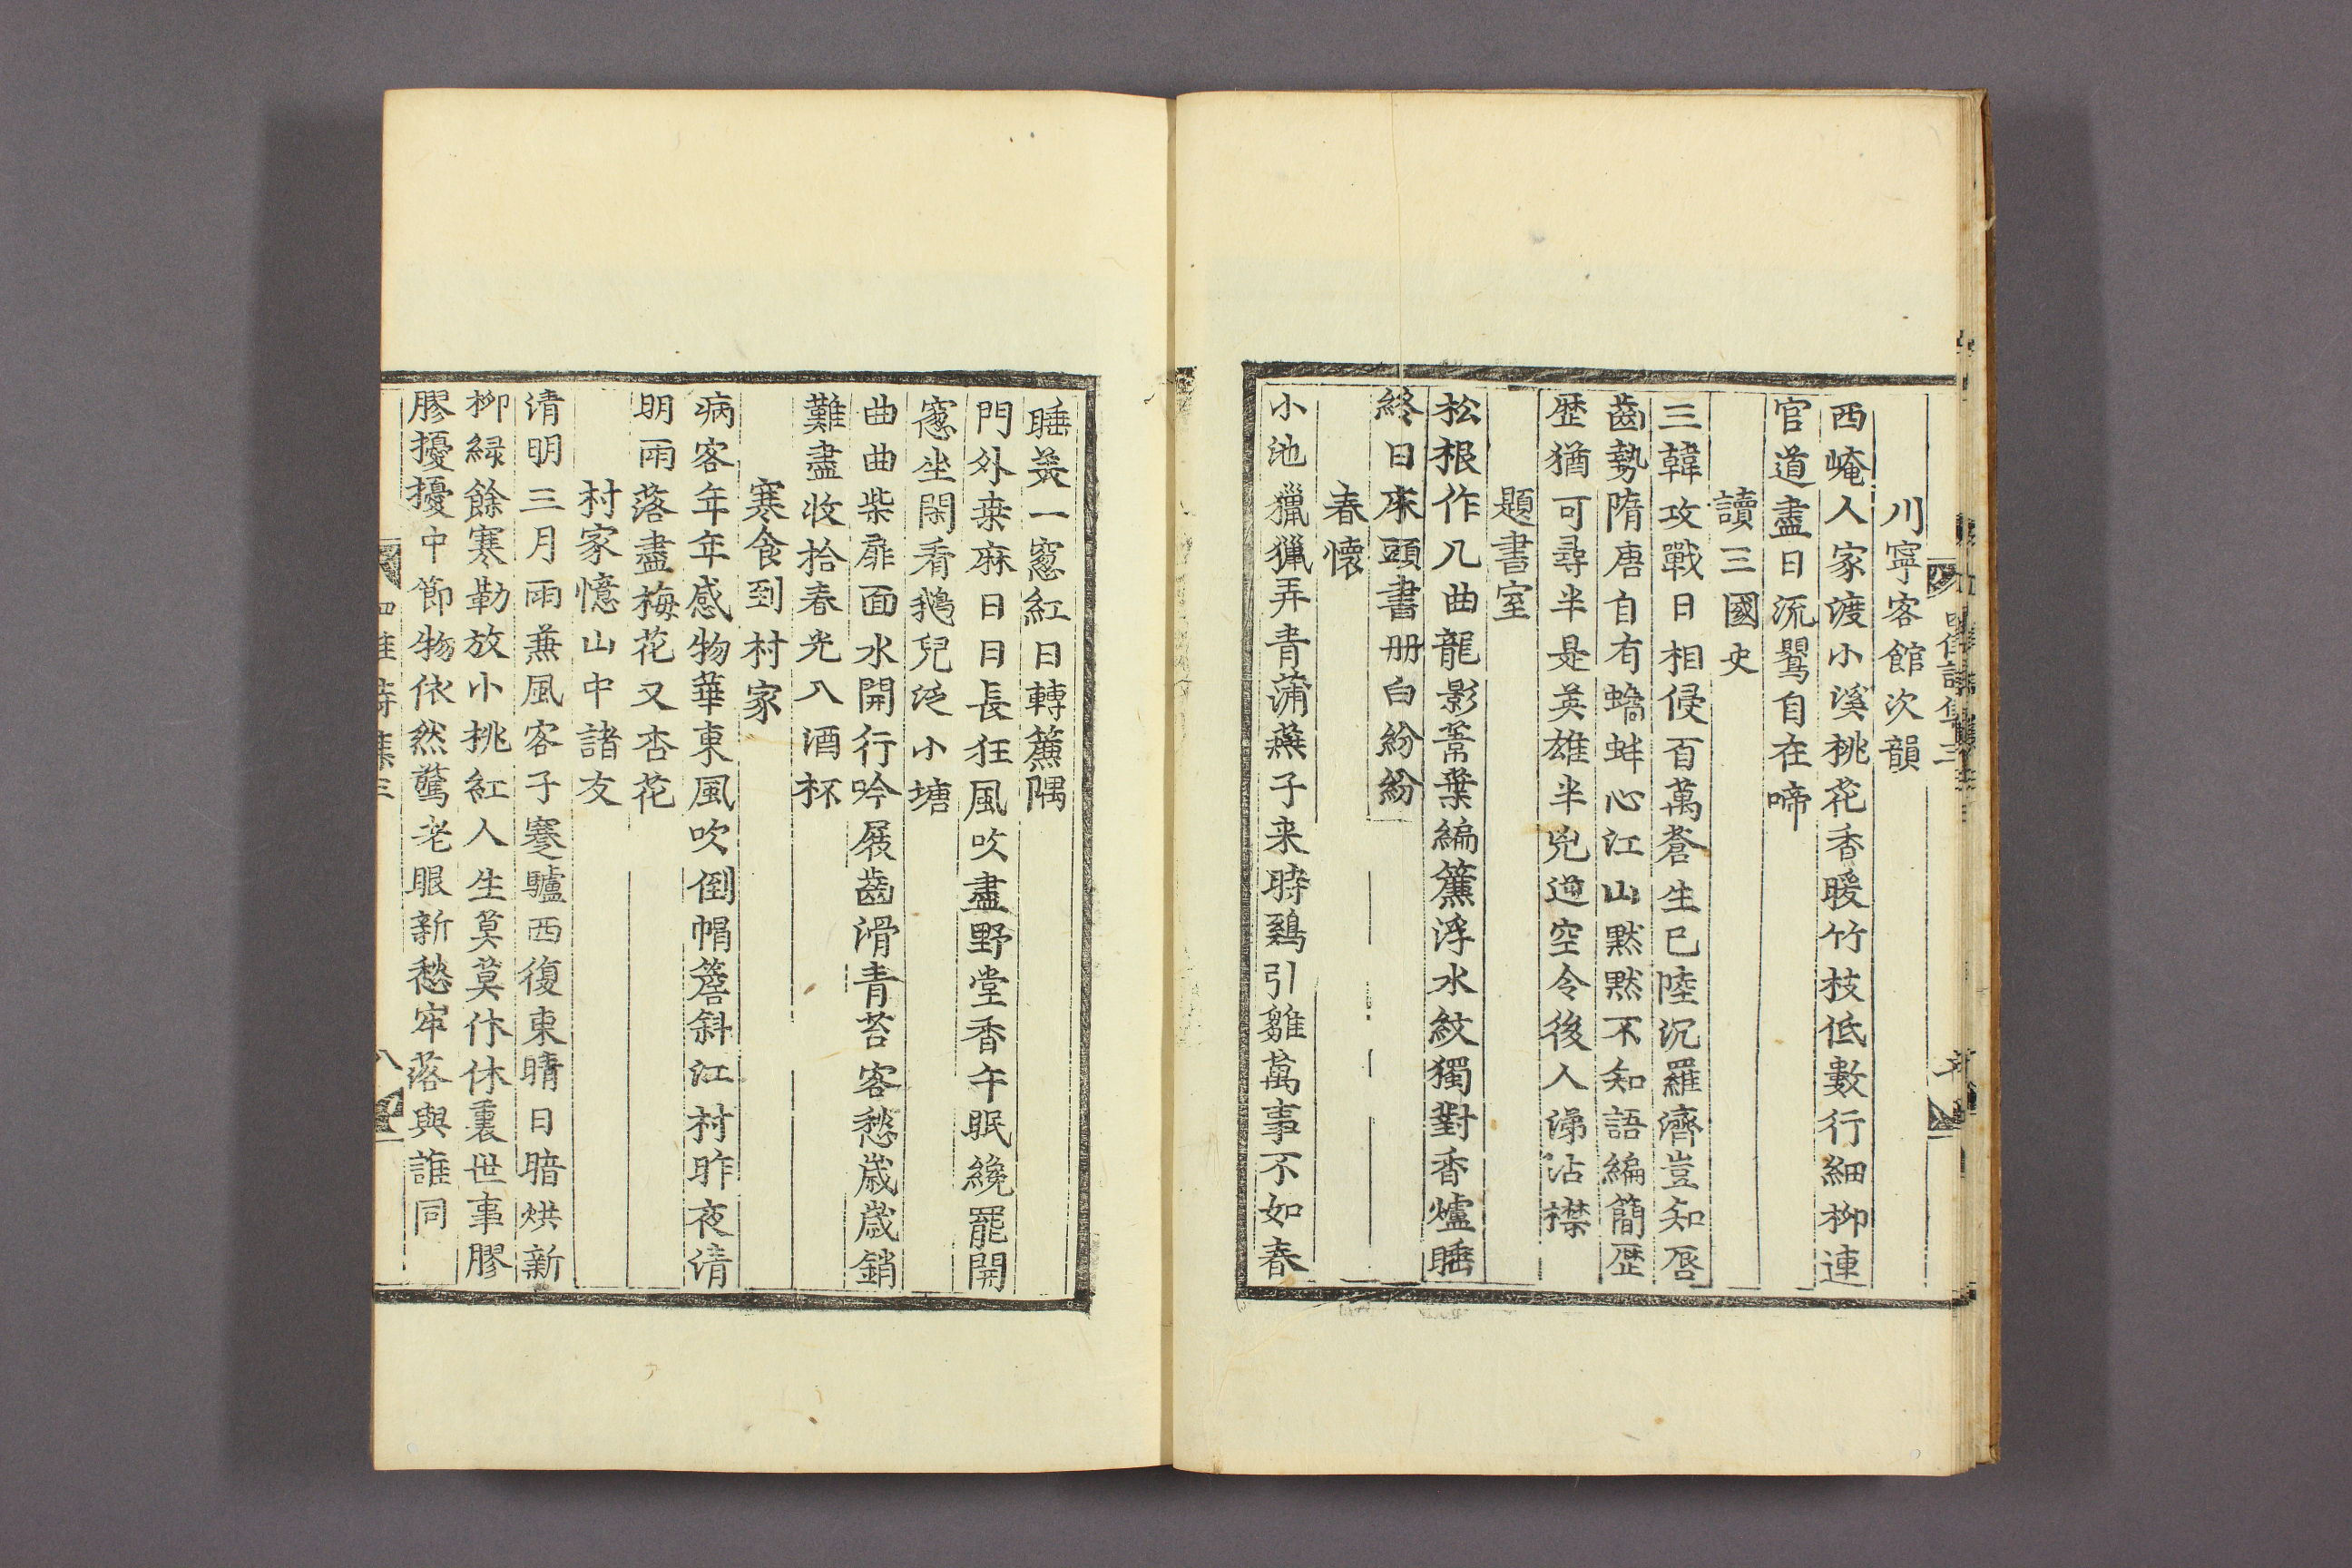 川寧客館次韻
西崦人家渡小溪桃花香暖竹枝低數行細柳連
官道盡日流鸎自在啼
讀三國史
三韓攻戰日相侵百萬蒼生已陸沉羅濟豈知唇
齒勢隋唐自有蟾蚌心江山黙黙不知語編簡歷
歷猶可尋半是英雄半兇逆空令後人涕沾襟
題書室
松根作几曲龍影葦葉編簾浮水紋獨對香爐睡
終日床頭書册白紛紛
春懷
小池獵獵弄青蒲燕子来時鷄引雛萬事不如春
睡美一窓紅日轉簾隅
門外桒麻日日長狂風吹盡野堂香午眠纔罷開
窓坐閑看鵝兒泛小塘
曲曲柴扉面水開行吟屐齒滑青苔客愁歲歲銷
難盡收拾春光入酒杯
寒食到村家
病客年年感物華東風吹倒帽簷斜江村昨夜清
明雨落盡梅花又杏花
村家憶山中諸友
清明三月雨兼風客子蹇驢西復東晴日暗烘新
柳緑餘寒勒放小挑紅人生莫莫休休裏世事膠
膠擾擾中節物依然驚老眼新愁牢落與誰同
四佳詩集三
八